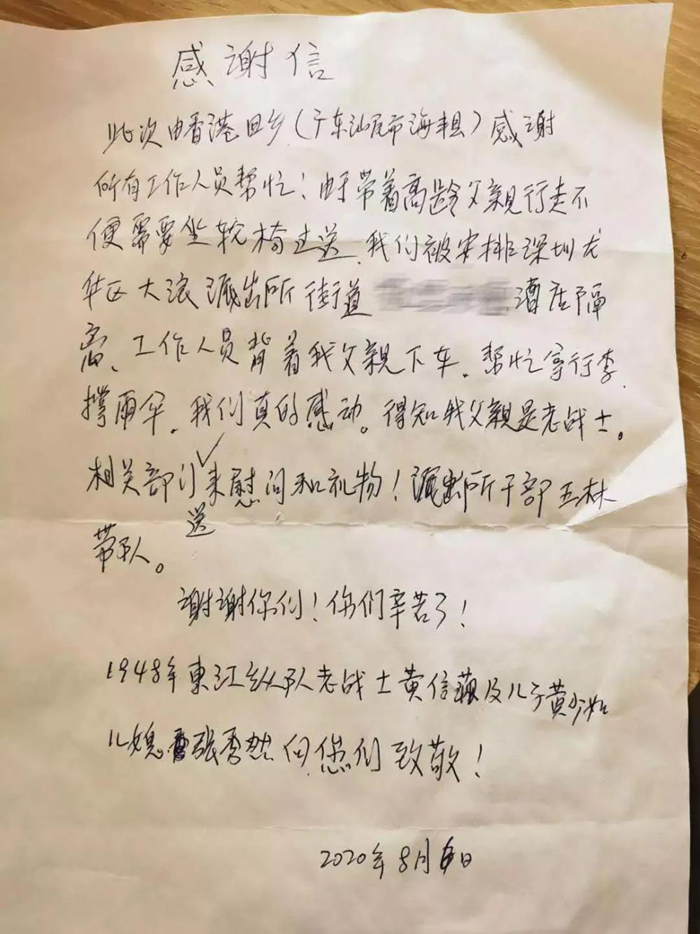 感谢信
此次由香港回乡(广东汕尾市海丰县)感谢
所有工作人员帮忙!由于带着高龄父亲行走不
便需要坐轮椅过送,我们被安排深圳龙
华区大浪派出所街道 酒店隔
离、工作人员背着我父亲下车,帮忙拿行李,
撑雨伞。我们真的感动。得知我父亲是老战士。
相关部门送来慰问和礼物!派出所干部王林
带队。
谢谢你们!你们辛苦了!
1948年東江纵队老战士黄信 及儿子黄少如
儿媳 张香然向您们致敬!
2020年8月6日